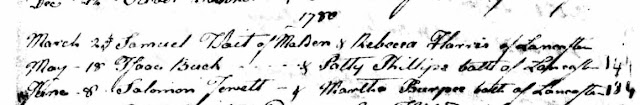 Dec
1780
March 25 Samuel Wait of Malden & Rebecca Harris of Lancaster
May - 18 Isaac Buck - - & Patty Phillips both of Lancaster
June 8 Salomon Jewett - & Martha Burpee both of Lancaster